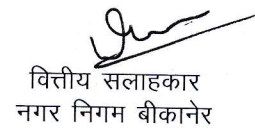 वित्तीय सलाहकार
नगर निगम बीकानेर